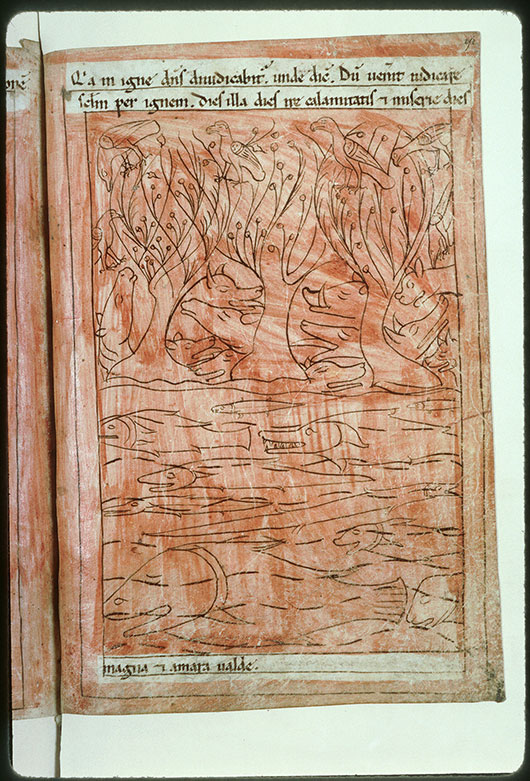 Q'a in igne dn̄s diuidicabit᷑. unde dic̄. Dū uen̄it iudicare
sc̄lm per ignem. Dies illa dies ire calamitatis ⁊ miserie dies
magna ⁊ amara ualde.
onē